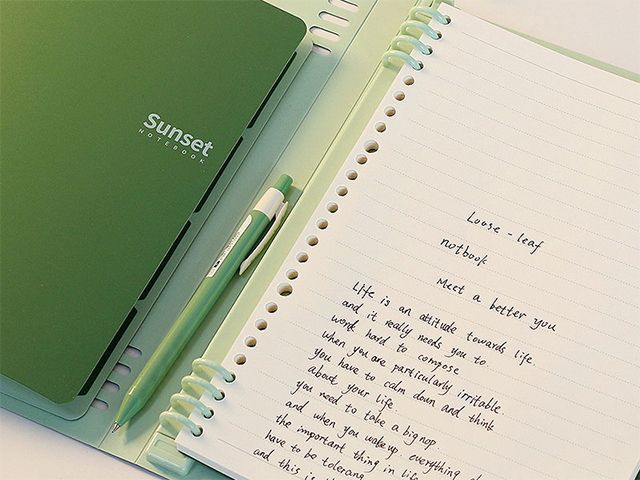 Sunset
NOTEBOOK
Loose-leaf
notbook
Meet a better you
Life is an attitude towards life.
and it really needs you to
work hard to compose
when you are particularly irritable
you have to calm down and think
about your life.
you need to take a big nop
and when you wake up. everything
the important thing in life
have to be tolerang
and this is